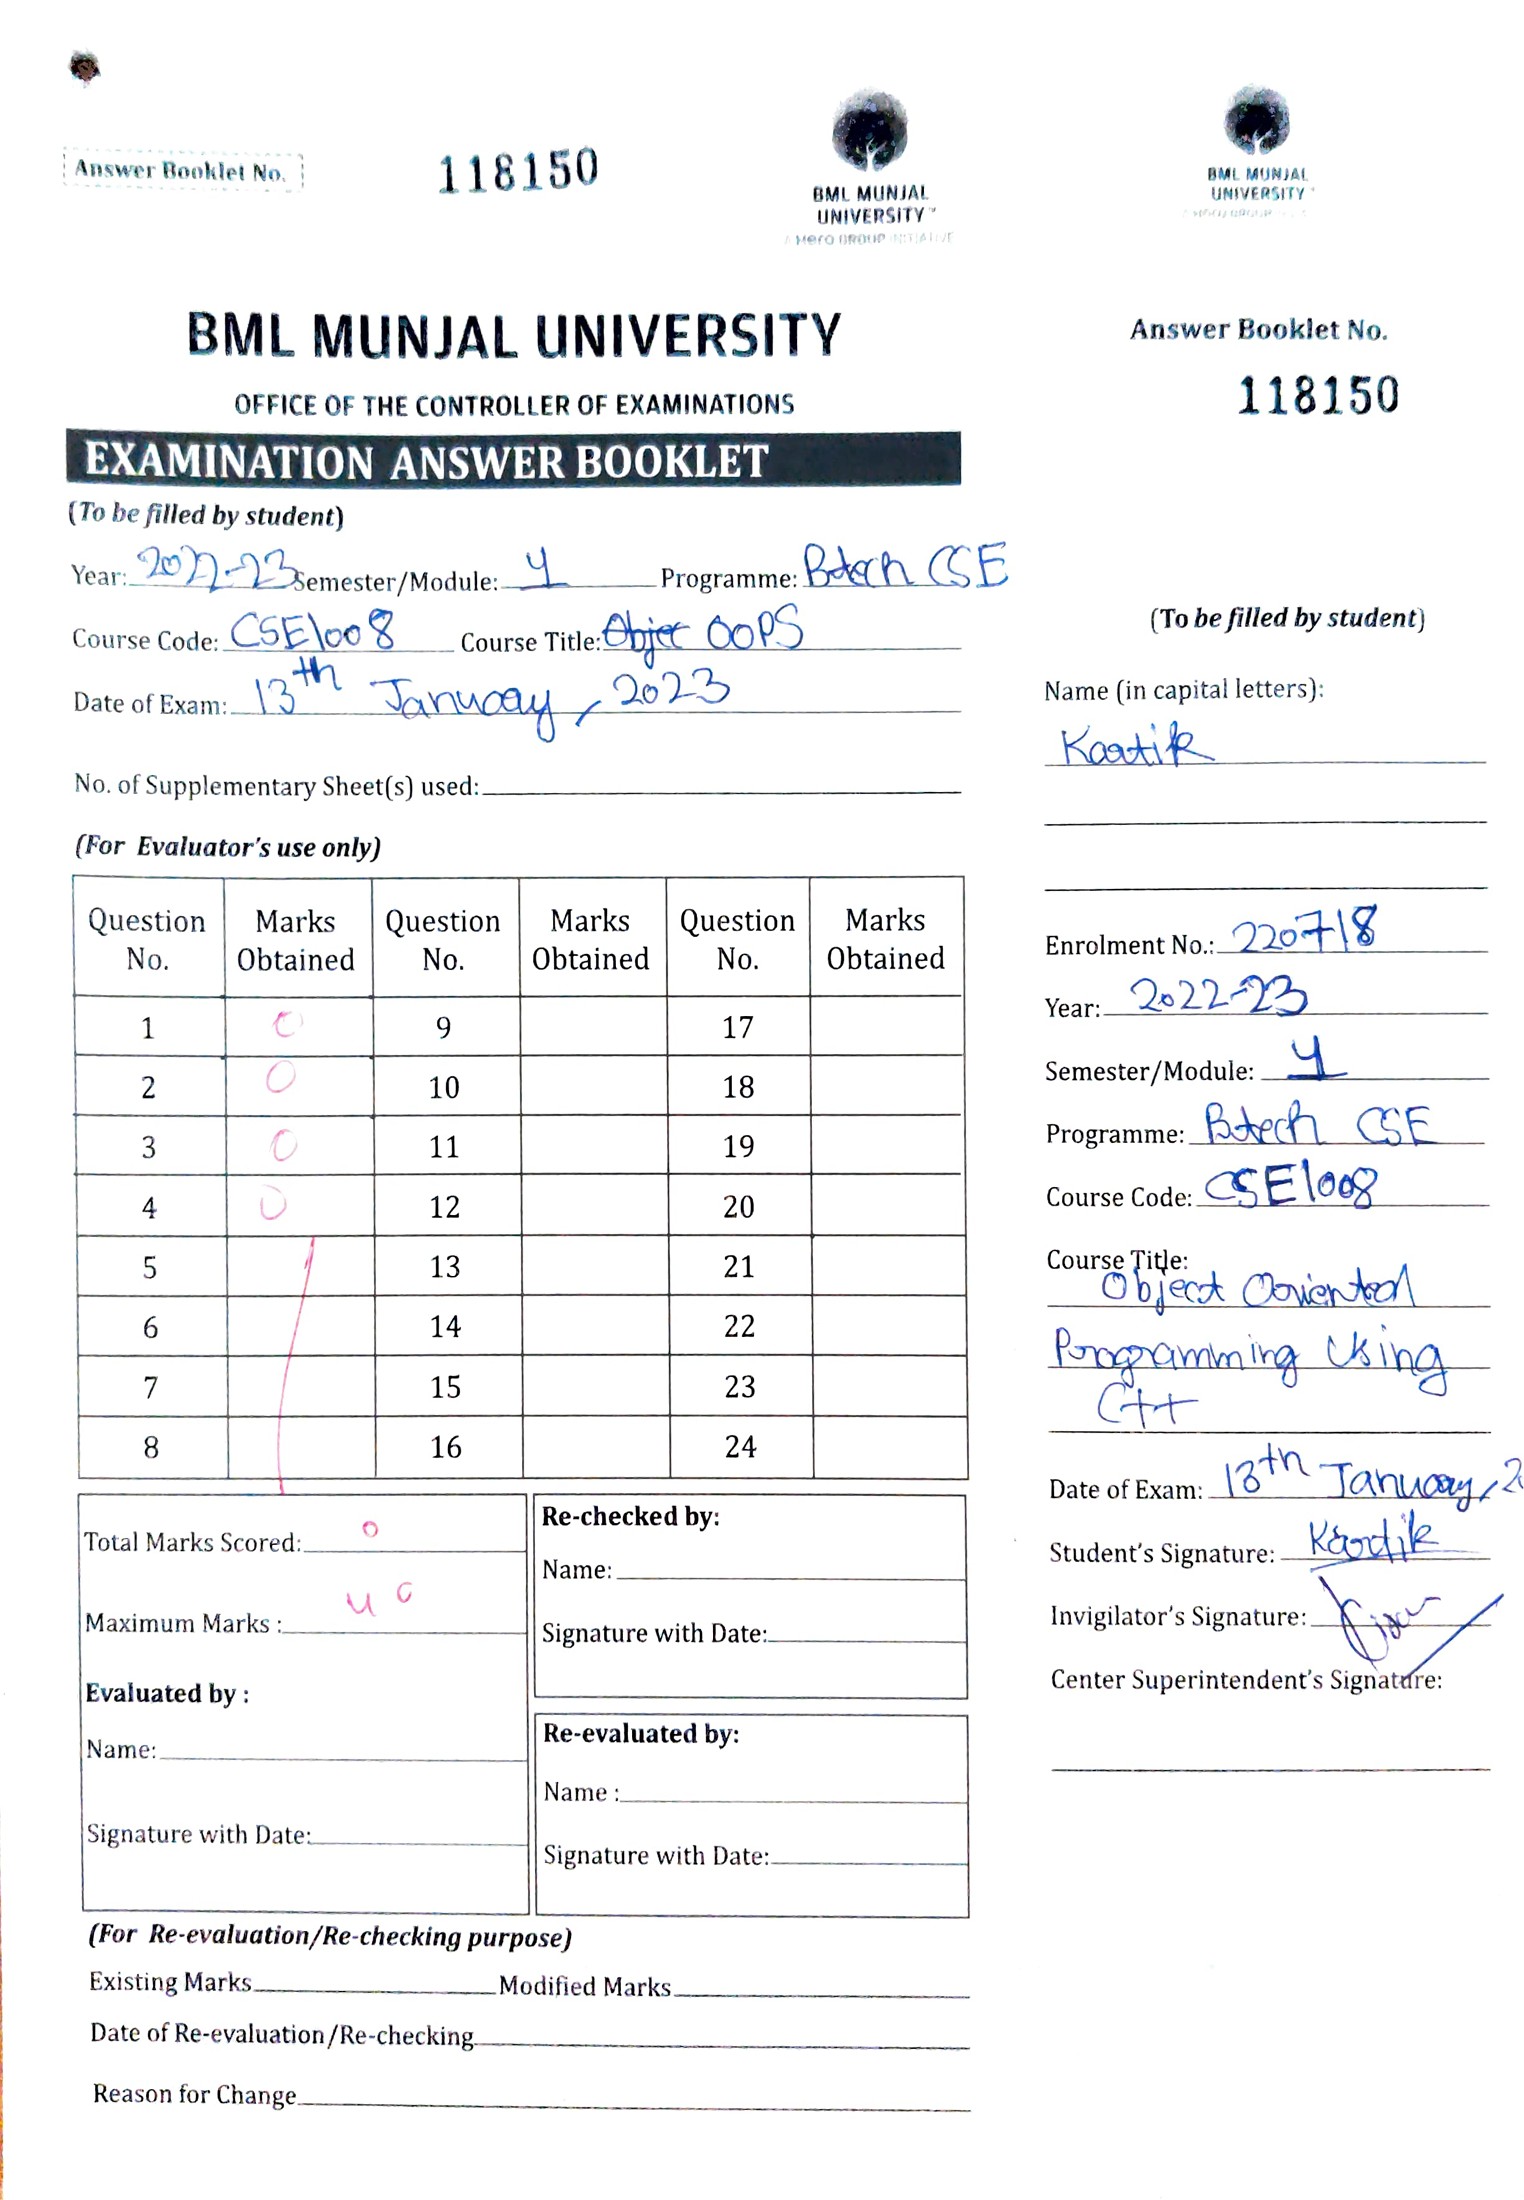 Answer Booklet No. 118150
BML MUNJAL
UNIVERSITY™
A Hero GROUP INITIATIVE
BML MUNJAL UNIVERSITY
OFFICE OF THE CONTROLLER OF EXAMINATIONS
EXAMINATION ANSWER BOOKLET
(To be filled by student)
Year: 2022-23 Semester/Module: 4 Programme: Btech CSE
Course Code: CSE1008 Course Title: Objec OOPS
Date of Exam: 13th January, 2023
No. of Supplementary Sheet(s) used:
(For Evaluator's use only)
Question No. Marks Obtained Question No. Marks Obtained Question No. Marks Obtained
1 0 9 17
2 0 10 18
3 0 11 19
4 0 12 20
5 13 21
6 14 22
7 15 23
8 16 24
Total Marks Scored: 0
Maximum Marks : 40
Evaluated by :
Name:
Signature with Date:
Re-checked by:
Name:
Signature with Date:
Re-evaluated by:
Name :
Signature with Date:
(For Re-evaluation/Re-checking purpose)
Existing Marks Modified Marks
Date of Re-evaluation/Re-checking
Reason for Change
BML MUNJAL
UNIVERSITY
Answer Booklet No.
118150
(To be filled by student)
Name (in capital letters):
Kartik
Enrolment No.: 220718
Year: 2022-23
Semester/Module: 4
Programme: Btech CSE
Course Code: CSE1008
Course Title:
Object Oriented
Programming Using
C++
Date of Exam: 13th January, 2
Student's Signature: Kartik
Invigilator's Signature:
Center Superintendent's Signature: